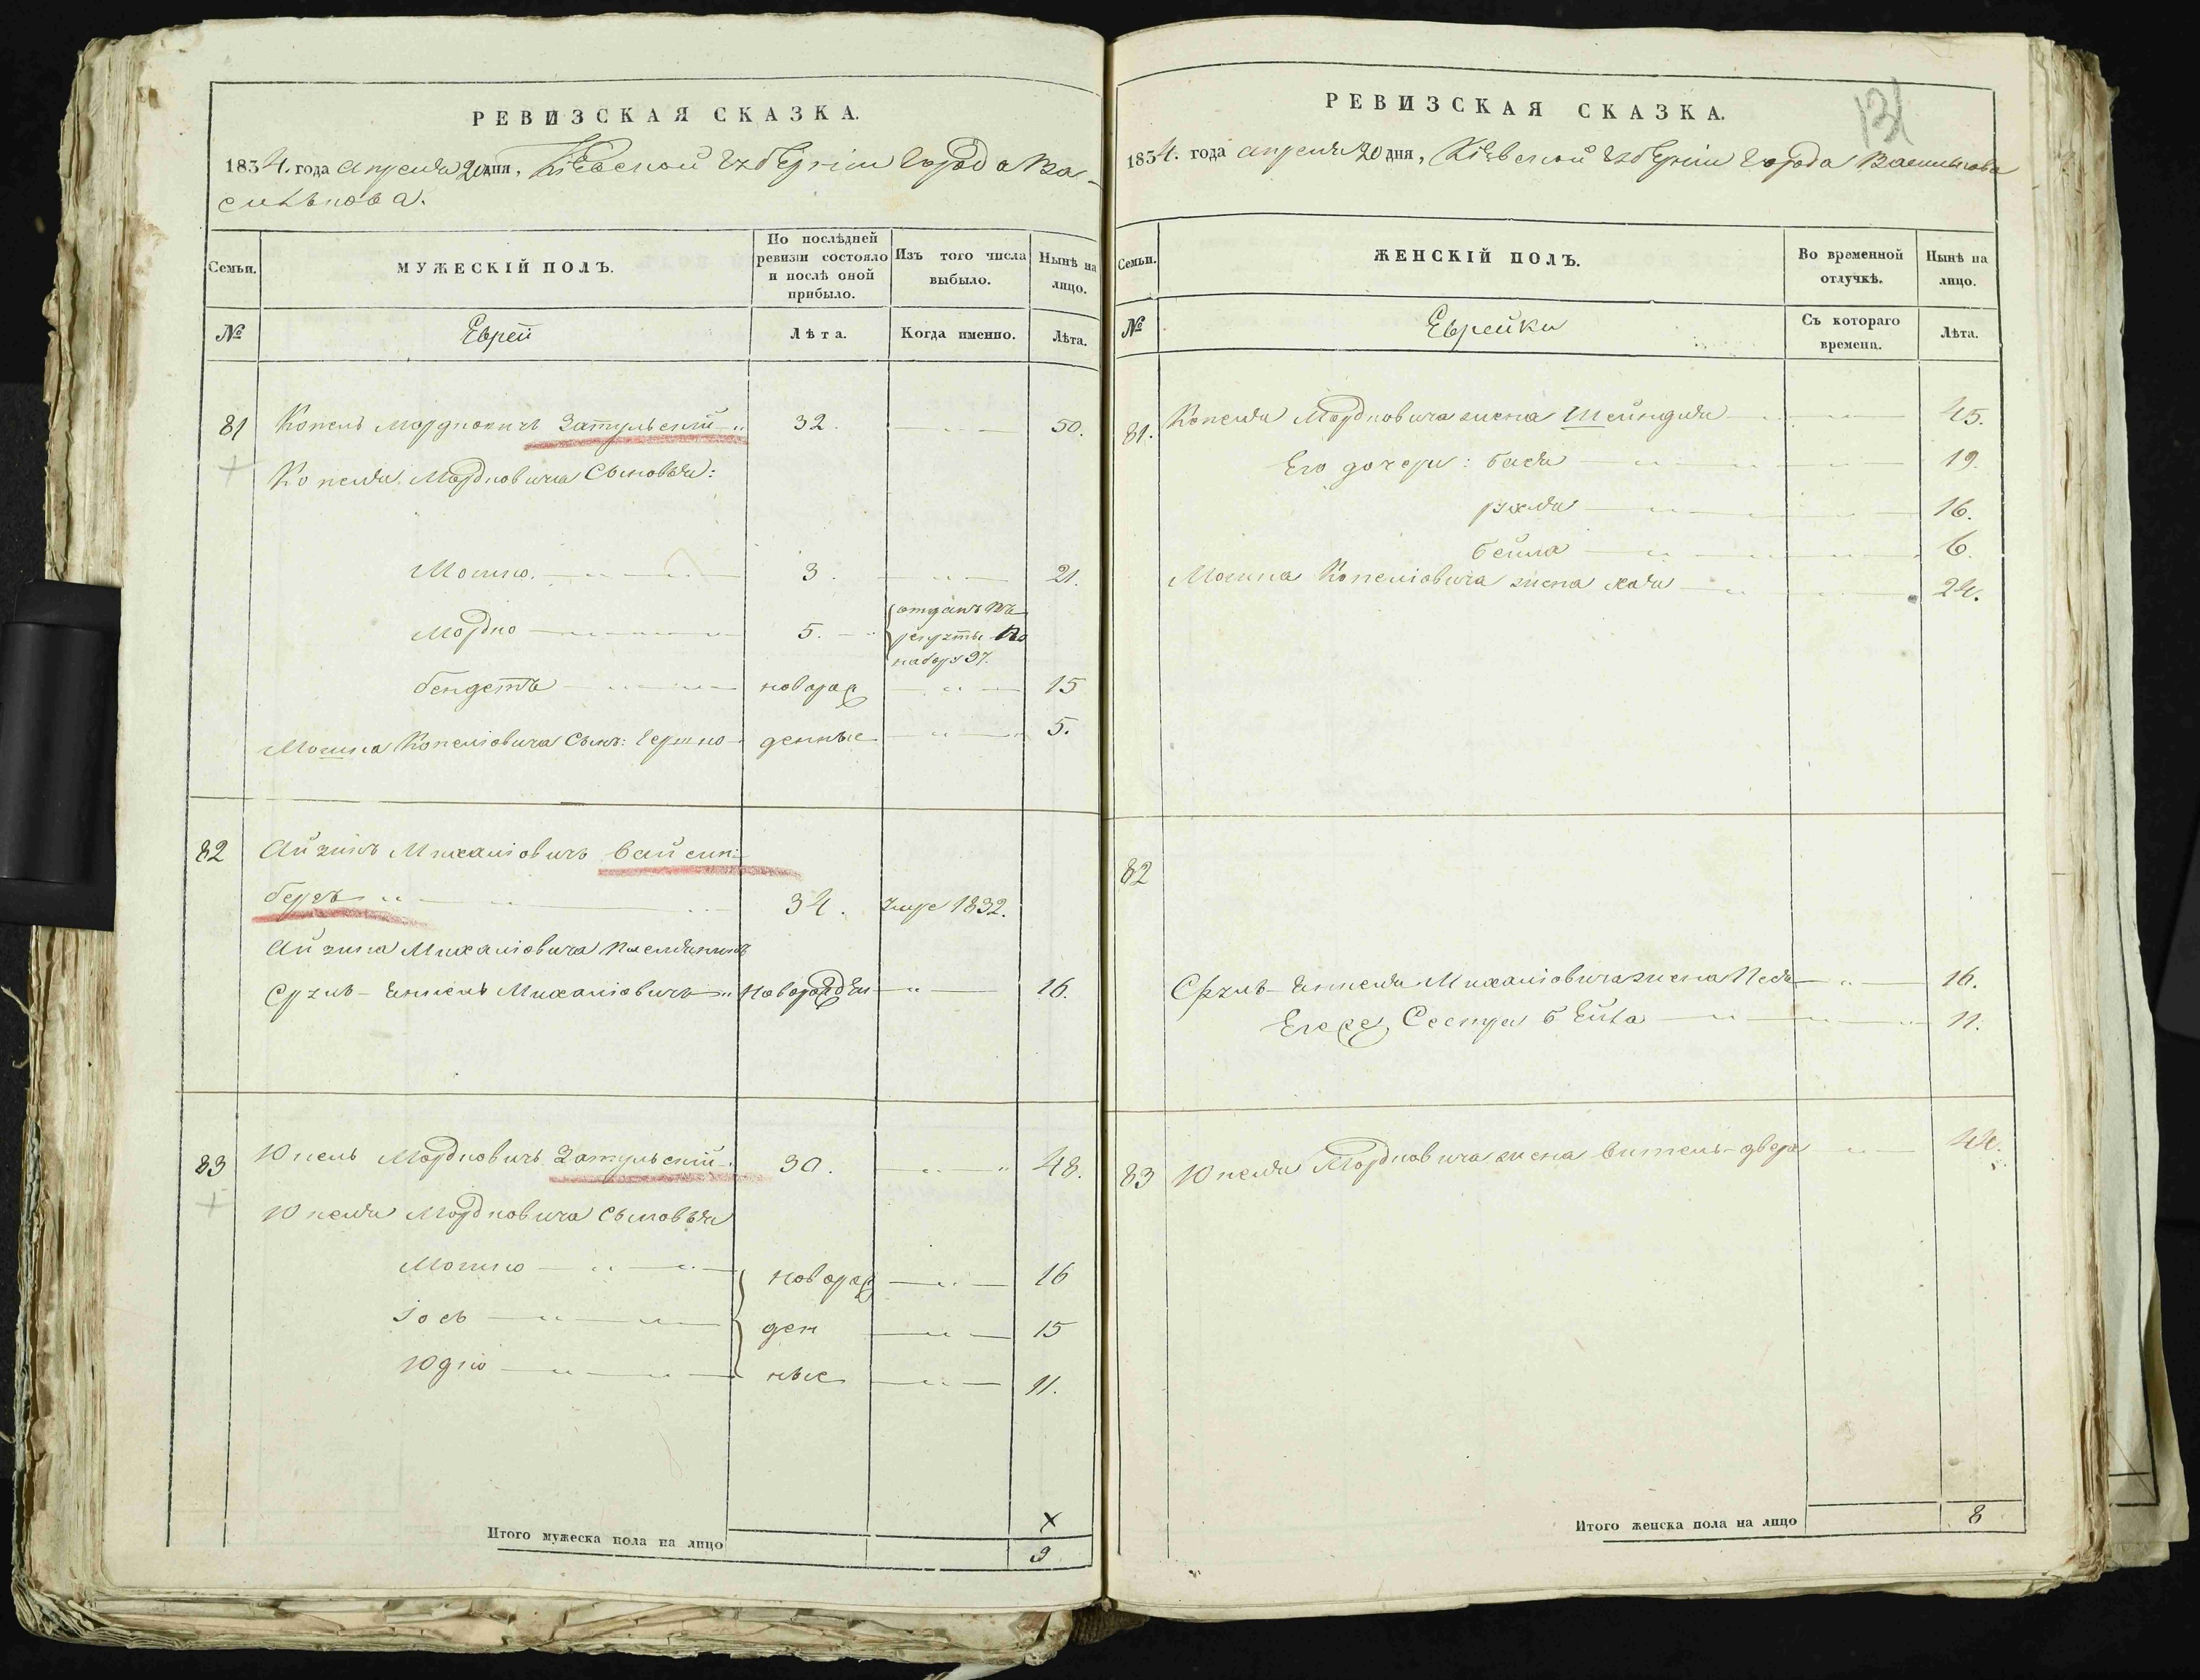 РЕВИЗСКАЯ СКАЗКА.
1834. года апреля 20 дня, Кіевской губерніи города Ва-
силькова.
Семьи.
МУЖЕСКІЙ ПОЛЪ.
По послѣдней ревизіи состояло и послѣ оной прибыло.
Изъ того числа выбыло.
Нынѣ на лицо.
№
Евреи
Лѣта.
Когда именно.
Лѣта.
81 Копель Мордковичъ Затульскій 32. 50.
Копеля Мордковича Сыновья:
Мошко. 3. 21.
Мордко 5. отданъ въ
рекруты по
набору 97.
бендетъ новорож 15
Мошка Копелiовича Сынъ: Гершко денные 5.
82 Айзикъ Михалiовичъ Вайсин-
бергъ 34. умре 1832.
Айзика Михалiовича племянникъ
Срулъ-Янкель Михалiовичъ новорожден 16.
83 Юкель Мордковичъ Затульскій 30. 48.
Юкеля Мордковича Сыновья
Мошко новорож 16
Іось ден 15
Юдко ные 11.
Итого мужеска пола на лицо
9
РЕВИЗСКАЯ СКАЗКА.
131
1834. года апреля 20 дня, Кіевской губерніи города Василькова
Семьи.
ЖЕНСКІЙ ПОЛЪ.
Во временной отлучкѣ.
Нынѣ на лицо.
№
Еврейки
Съ котораго времени.
Лѣта.
81. Копеля Мордковича жена Шейндля 45.
Его дочери: бася 19.
рухля 16.
бейла 6.
Мошка Копелiовича жена хая 24.
82
Срулъ-Янкеля Михалiовича жена Песя 16.
Его же, Сестра бейла 11.
83 Юкеля Мордковича жена витель-двера 44.
Итого женска пола на лицо 8